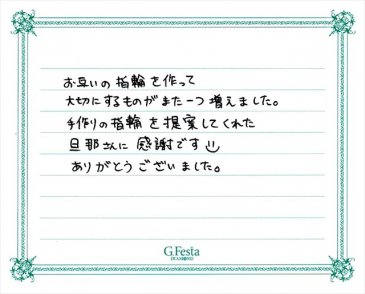 お互いの指輪を作って
大切にするものがまた一つ増えました。
手作りの指輪を提案してくれた
旦那さんに感謝です
ありがとうございました。
G.Festa
DIAMOND